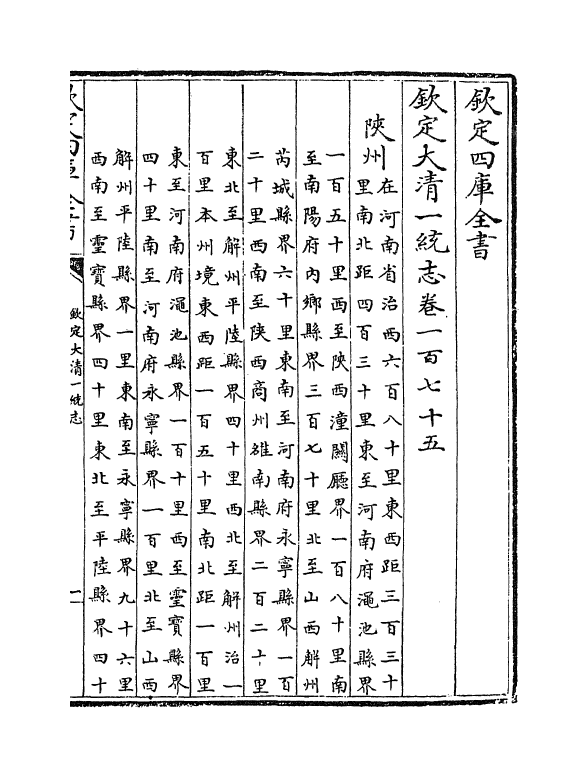 欽定四庫全書
欽定大清一統志卷一百七十五
陝州
在河南省治西六百八十里東西距三百三十
里南北距四百三十里東至河南府澠池縣界
一百五十里西至陝西潼關廳界一百八十里南
至南陽府内鄉縣界三百七十里北至山西解州
芮城縣界六十里東南至河南府永寧縣界一百
二十里西南至陝西商州雒南縣界二百二十里
東北至解州平陸縣界四十里西北至解州治一
百里本州境東西距一百五十里南北距一百里
東至河南府澠池縣界一百十里西至靈寶縣界
四十里南至河南府永寧縣界一百里北至山西
解州平陸縣界一里東南至永寧縣界九十六里
西南至靈寶縣界四十里東北至平陸縣界四十
欽定四庫全書
欽定大清一統志